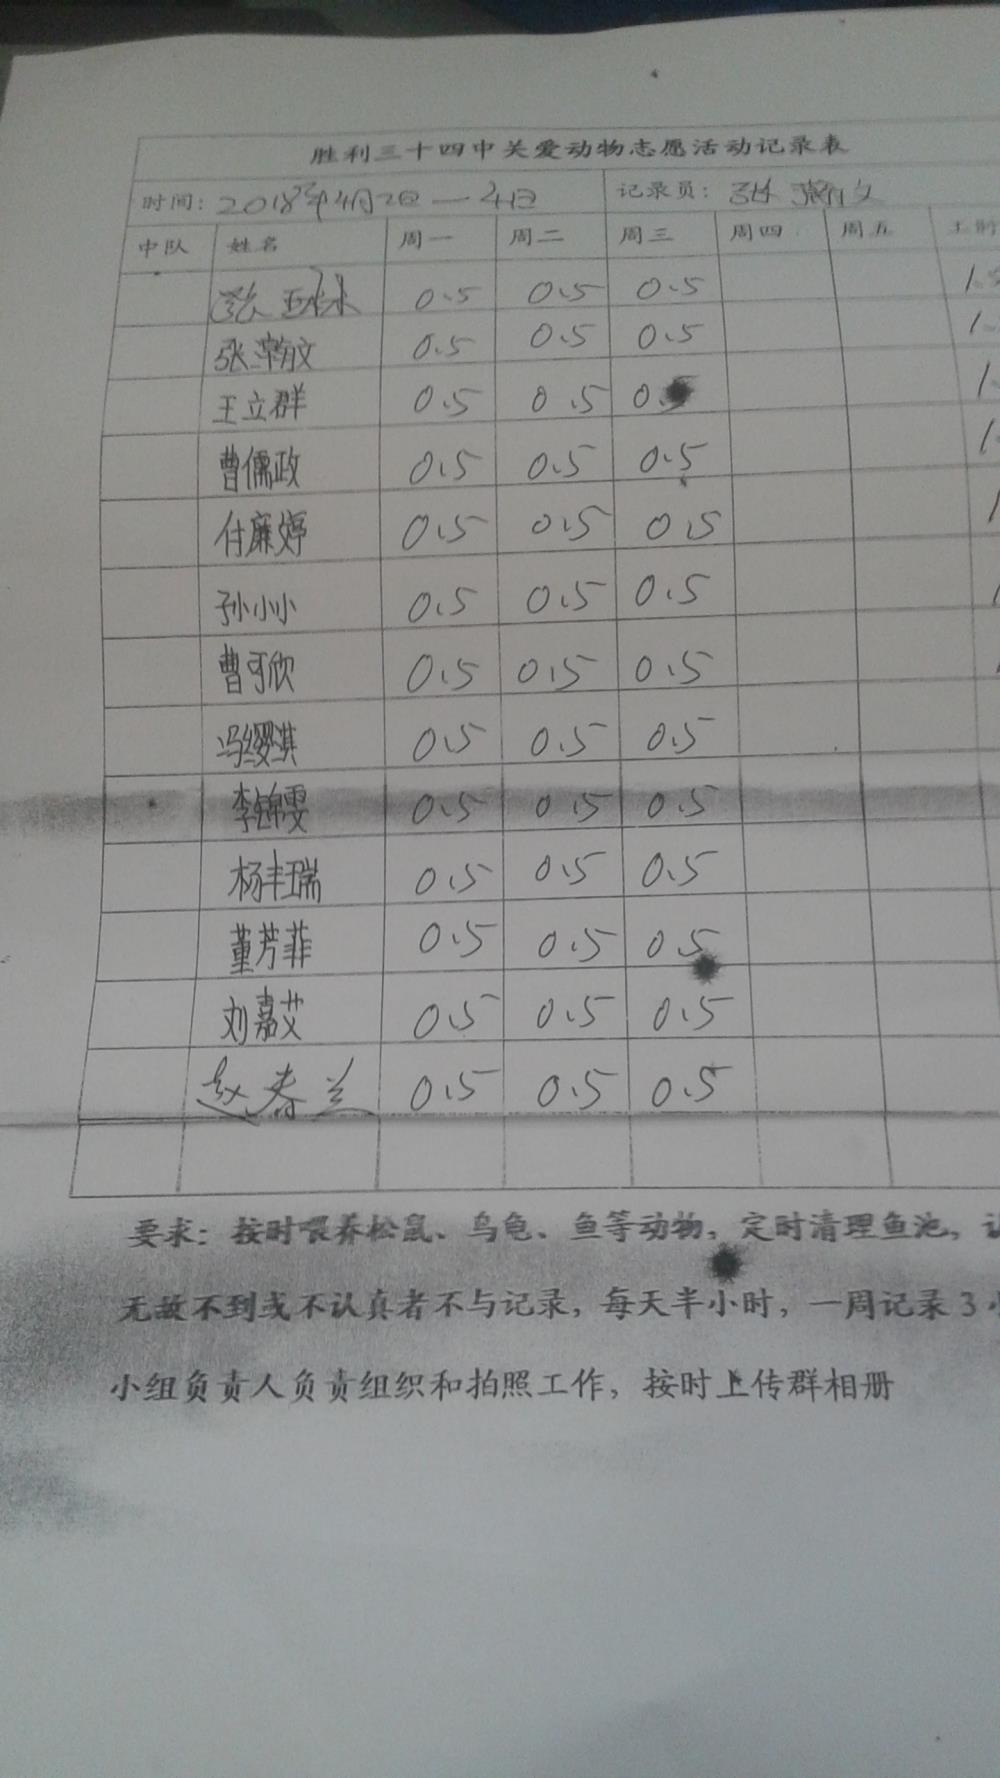 胜利三十四中关爱动物志愿活动记录表
时间：2018年4月2日—4日 记录员：张瀚文
中队 姓名 周一 周二 周三 周四 周五
张 0.5 0.5 0.5
张瀚文 0.5 0.5 0.5
王立群 0.5 0.5 0.5
曹儒政 0.5 0.5 0.5
付廉婷 0.5 0.5 0.5
孙小小 0.5 0.5 0.5
曹可欣 0.5 0.5 0.5
冯缨淇 0.5 0.5 0.5
李锦雯 0.5 0.5 0.5
杨丰瑞 0.5 0.5 0.5
董芳菲 0.5 0.5 0.5
刘嘉艾 0.5 0.5 0.5
赵春兰 0.5 0.5 0.5
要求：按时喂养松鼠、乌龟、鱼等动物，定时清理鱼池，
无故不到或不认真者不与记录，每天半小时，一周记录3
小组负责人负责组织和拍照工作，按时上传群相册